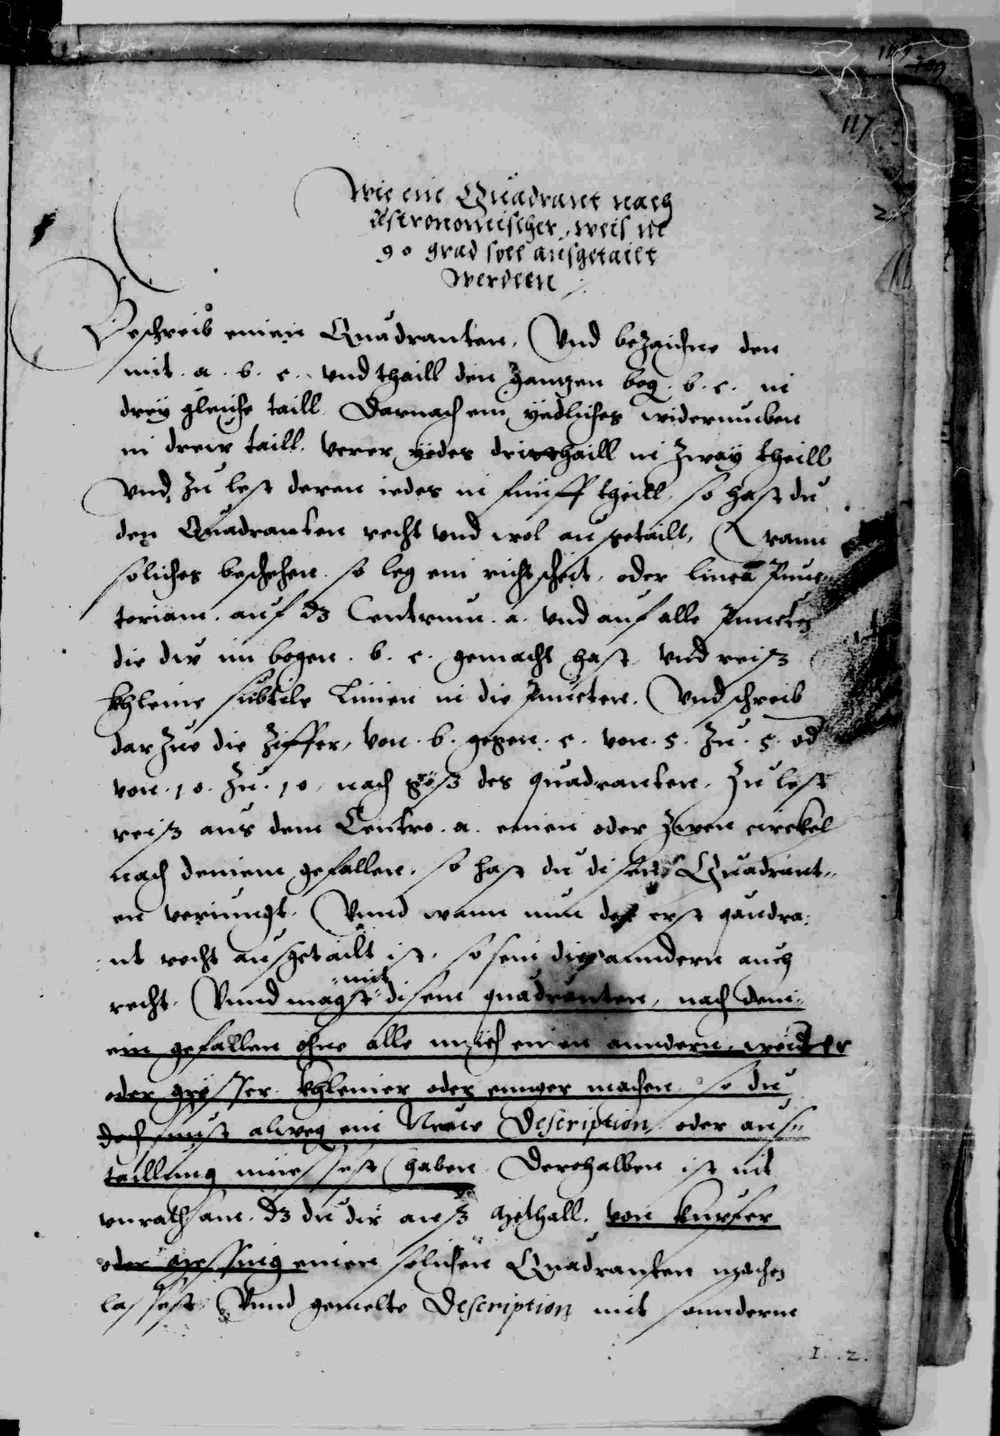 117
Wie ein Quadrant nach
Astronomischer weis in
90 grad soll ausgetailt
werden
Beschreib einen Quadranten, Vnd bezaichne den
mit . a . b . c . vnd thaill den gantzen bog . b . c . in
drey gleiche taill. Darnach ein yedliches widerumben
in drew taill. verer yedes dritthaill in zway theill
Vnd zu lest deren iedes in funff theill, so hast du
den Quadranten recht vnd wol ausgetailt, Wann
soliches beschehen. so leg ein richtscheit, oder linea Punc-
toriam. auf dz Centrum . a . vnd auf alle puncten
die dw im bogen . b . c . gemacht hast vnd reiß
khleine subtile Linien in die puncten. Vnd schreib
darzue die Ziffer, von . b . gegen . c . von . 5 . zu . 5 . od
von . 10 . zu . 10 . nach größ des quadranten. Zu lest
reiß aus dem Centro . a . einen oder zwen circkel
nach deinem gefallen. so hast du disen Quadrant-
en veriungt. Vnnd wann nun der erst quadra-
nt recht ausgetailt ist, so sein die anndern auch
recht. Vnnd magst mit disem quadranten, nach dein-
em gefallen ohne alle mueh einen anndern, weitter
oder grösser khleiner oder ennger machen so du
doch sunst alweg ein Newe Description, oder aus-
taillung müessest haben. Derohalben ist nit
vnrathsam. dz du dir aus Methall. von kupfer
oder messing einen solichen Quadranten machen
lassest Vnnd gemelte Description mit sonnderm
I . 2 .